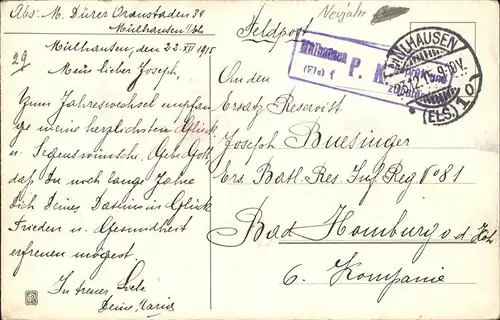 Abs: M. Dürer Oranstaden 34
Mülhausen i/Els
Mülhausen, den 22.XII 1915
29
Mein lieber Joseph,
Zum Jahreswechsel empfan
ge meine herzlichsten Glück
u Segenswünsche. Gebe Gott,
daß Du noch lange Jahre
Dich Deines Daseins in Glück
Frieden u Gesundheit
erfreuen mögest.
In treuer Liebe
Deine Maria
Neujahr
Feldpost
Mülhausen
(Els)
P. K.
MÜLHAUSEN
(ELS.) 10
An den
Ersatz Reservist
Joseph Buesinger
Ers. Batl. Res. Inf. Reg N° 81
Bad Homburg v. d. Höh
6. Kompanie